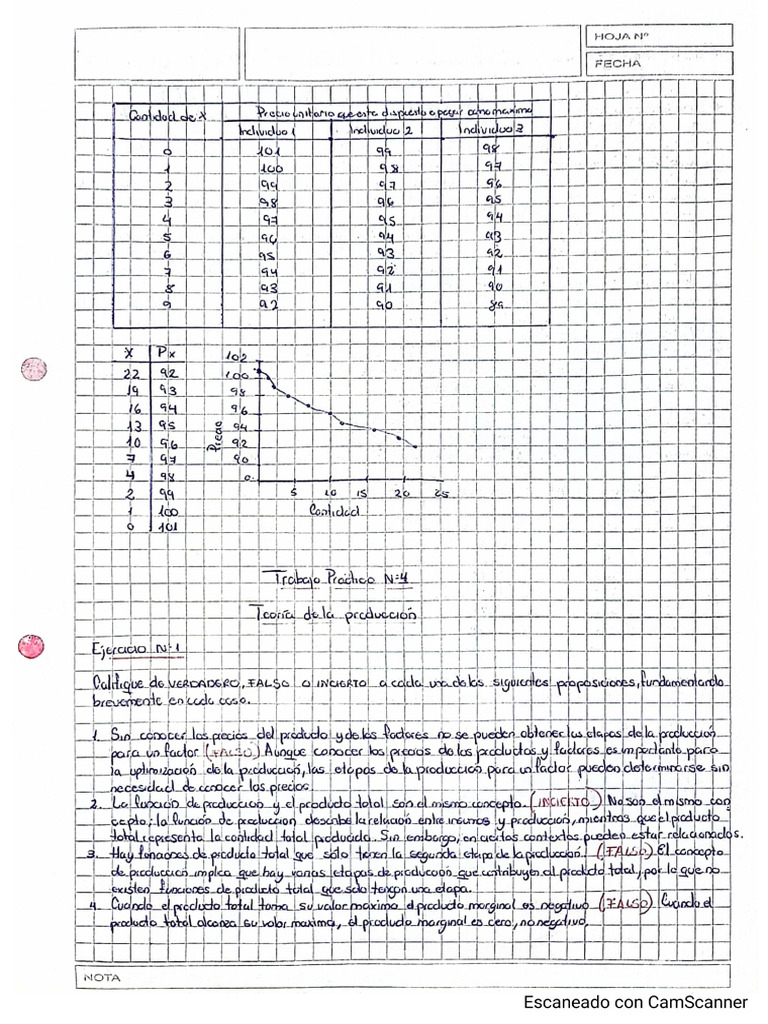 HOJA Nº
FECHA
Cantidad de X Precio unitario que esta dispuesto a pagar como maximo
Individuo 1 Individuo 2 Individuo 3
0 101 99 98
1 100 98 97
2 99 97 96
3 98 96 95
4 97 95 94
5 96 94 93
6 95 93 92
7 94 92 91
8 93 91 90
9 92 90 89
X Px
22 92
19 93
16 94
13 95
10 96
7 97
4 98
2 99
1 100
0 101
102
100
98
96
94
92
90
0
Precio
5 10 15 20 25
Cantidad
Trabajo Práctico N=4
Teoría de la producción
Ejercicio N=1
Califique de VERDADERO, FALSO o INCIERTO a cada una de las siguientes proposiciones, fundamentando
brevemente en cada caso.
1. Sin conocer los precios del producto y de los factores no se pueden obtener las etapas de la producción
para un factor (FALSO) Aunque conocer los precios de los productos y factores es importante para
la optimización de la producción, las etapas de la producción para un factor pueden determinarse sin
necesidad de conocer los precios.
2. La función de producción y el producto total son el mismo concepto. (INCIERTO) No son el mismo con
cepto; la función de producción describe la relación entre insumos y producción, mientras que el producto
total representa la cantidad total producida. Sin embargo, en ciertos contextos pueden estar relacionados.
3. Hay funciones de producto total que sólo tienen la segunda etapa de la producción. (FALSO) El concepto
de producción implica que hay varias etapas de producción que contribuyen al producto total, por lo que no
existen funciones de producto total que solo tengan una etapa.
4. Cuando el producto total toma su valor máximo el producto marginal es negativo (FALSO) Cuando el
producto total alcanza su valor maximo, el producto marginal es cero, no negativo.
NOTA
Escaneado con CamScanner